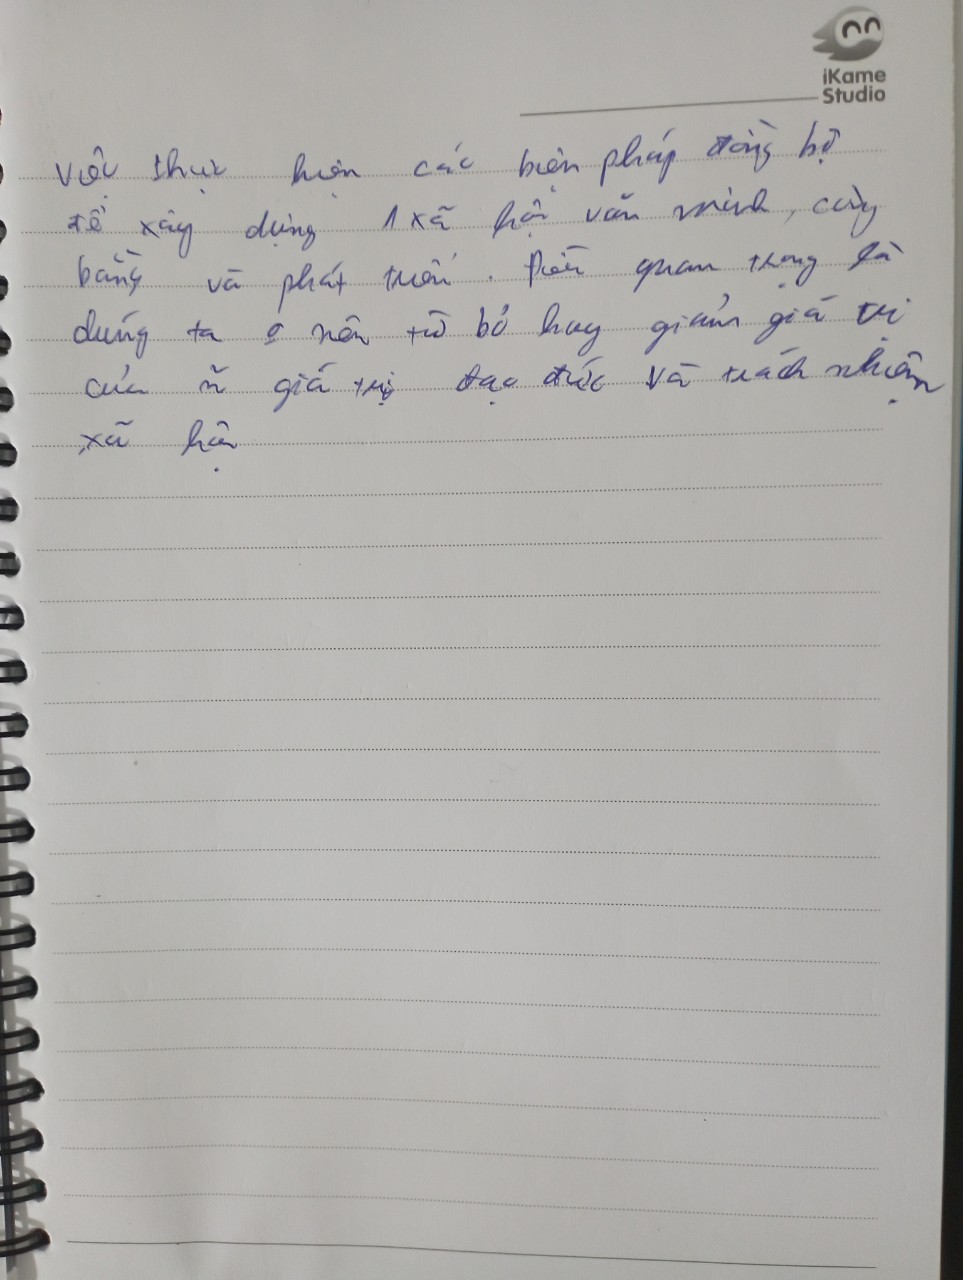 iKame
Studio
Việc thực hiện các biện pháp đồng bộ
để xây dựng 1 xã hội văn minh, công
bằng và phát triển. Điều quan trọng là
chúng ta nên từ bỏ hay giảm giá trị
của ~ giá trị đạo đức và trách nhiệm
xã hội